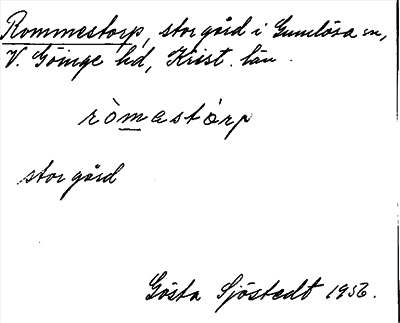 Rommestorp, storgård i Gumlösa sn,
V. Göinge hd, Krist. län.
ròmastòrp
storgård
Gösta Sjöstedt 1956.